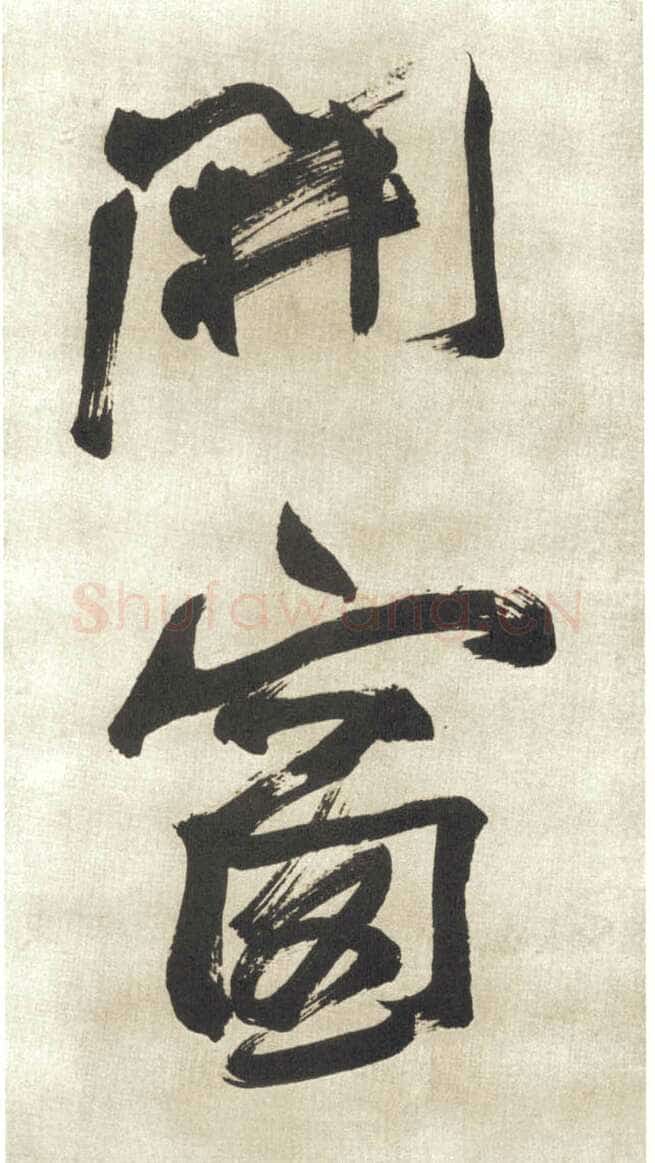 開
窗
Shufawang.CN